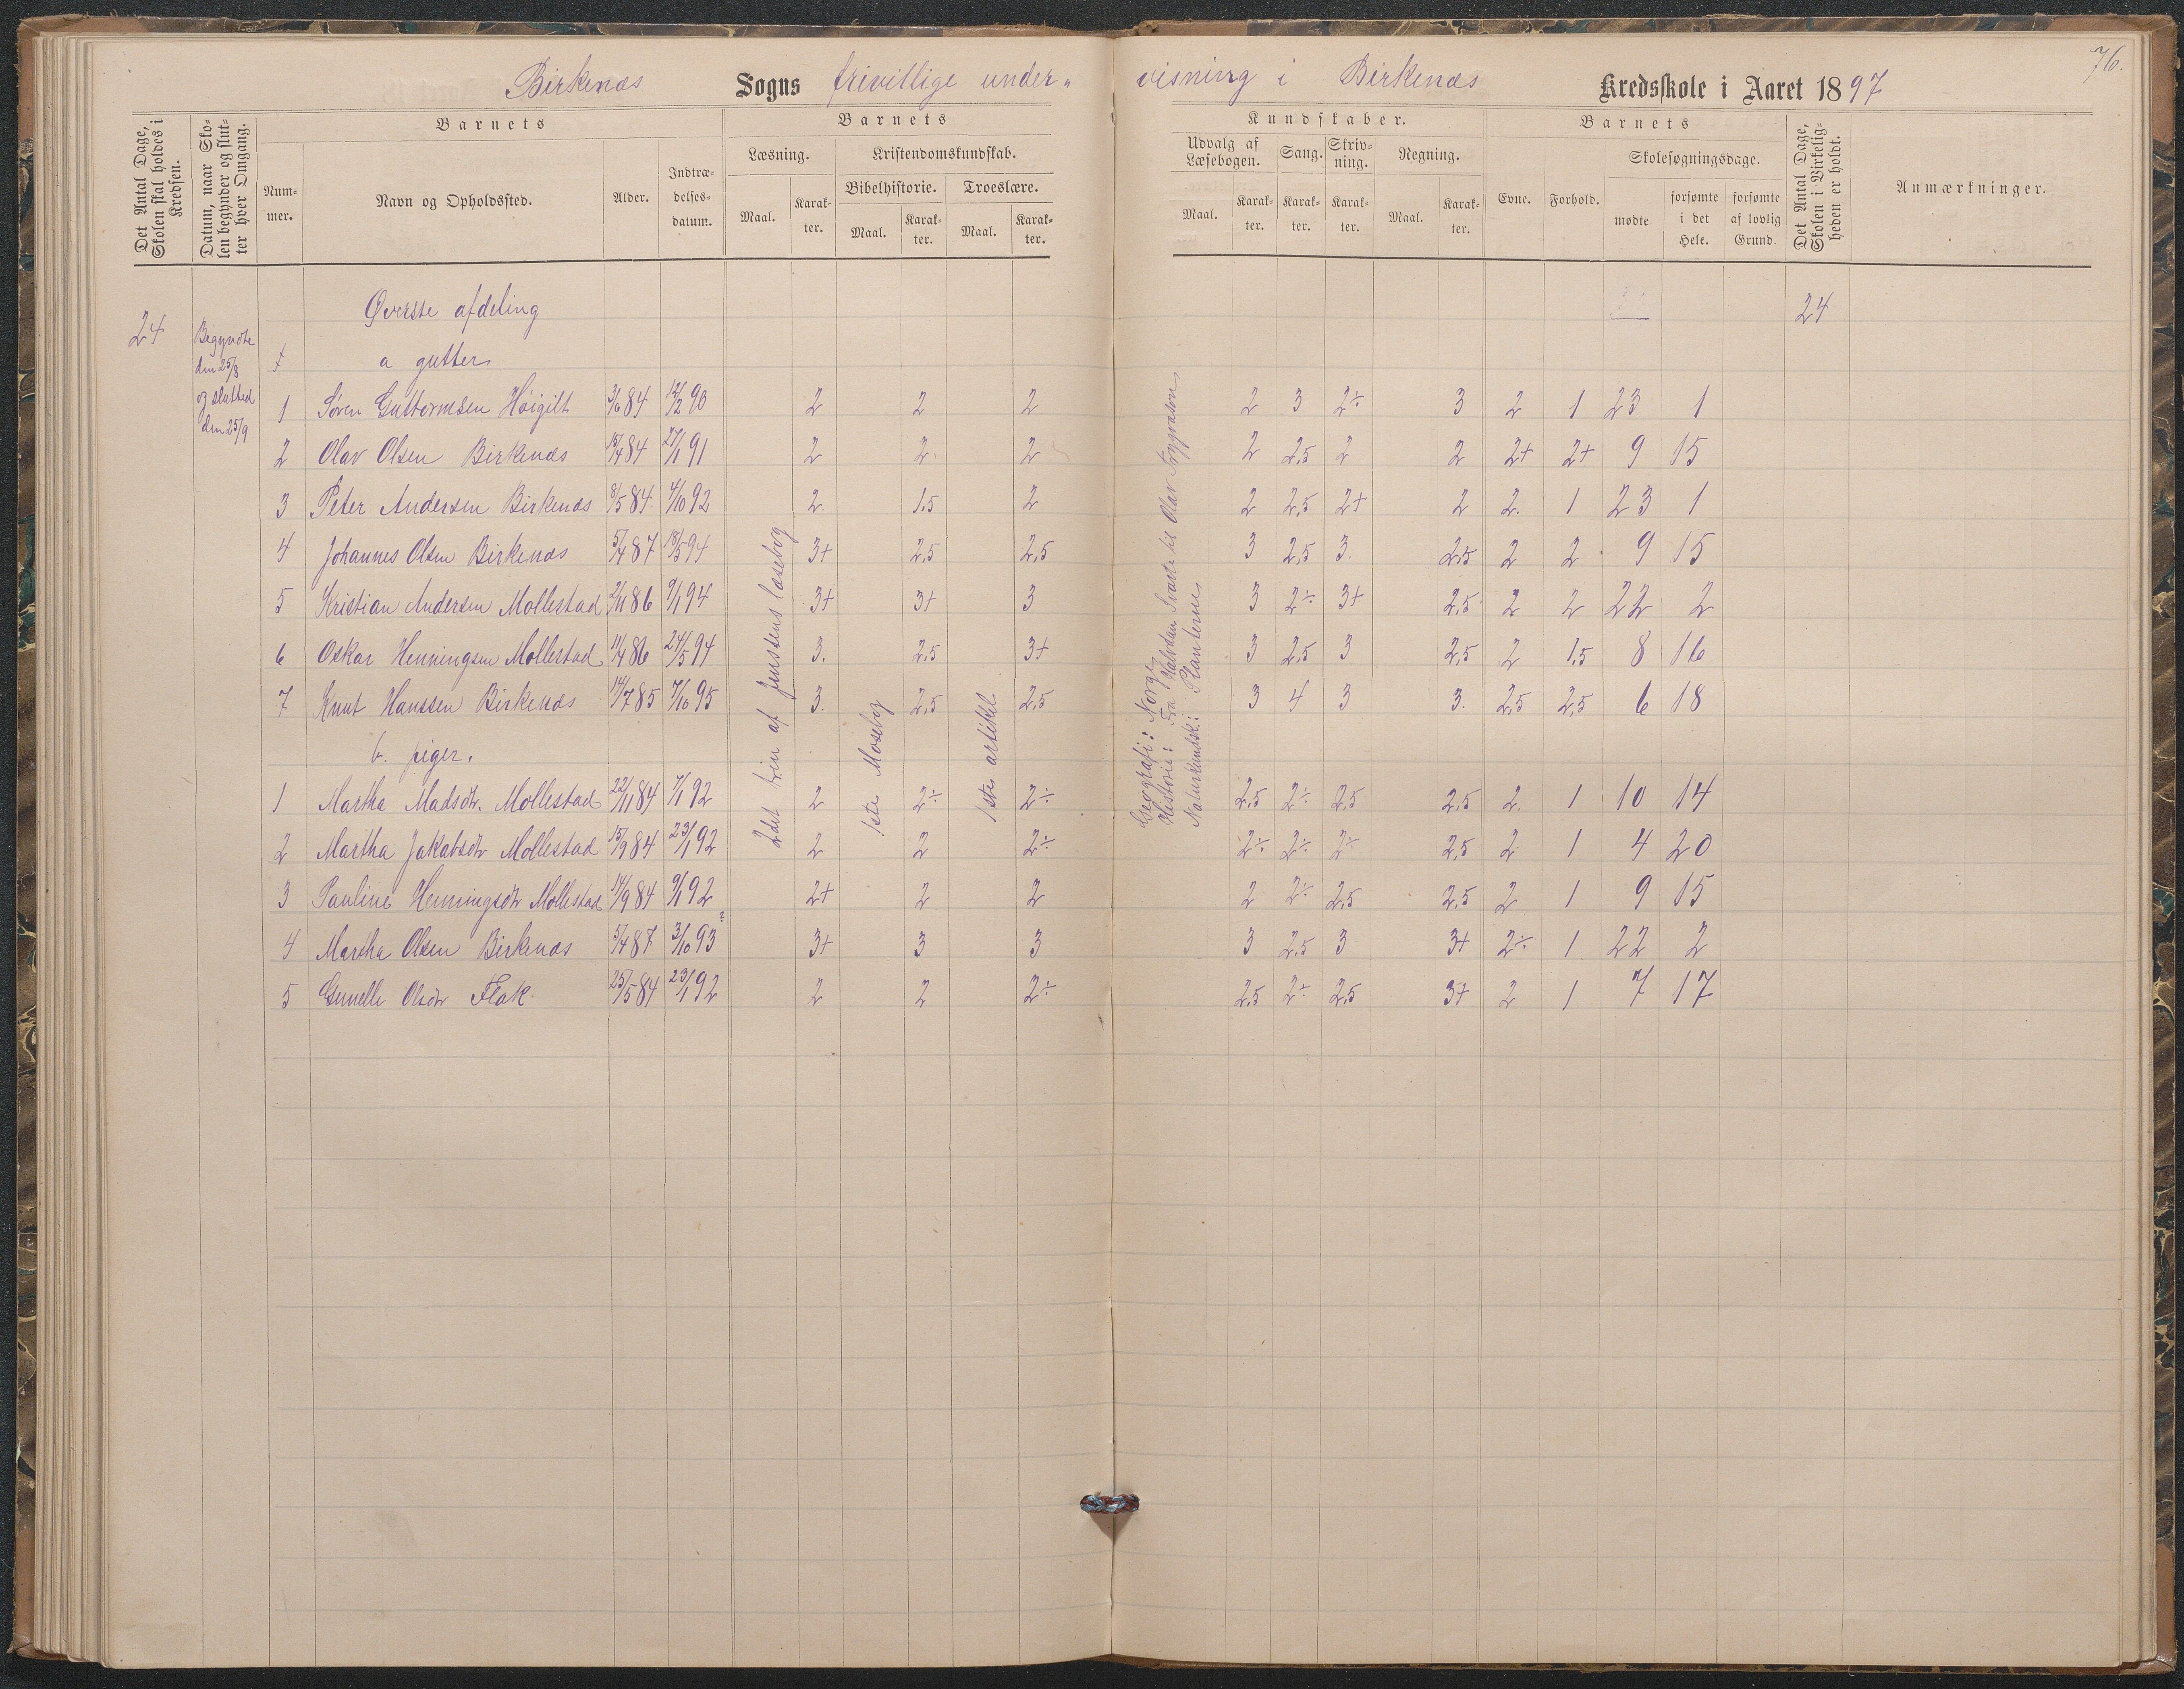 76.
Birkenæs Sogns frivillige under„ visning i Birkenæs Kredsskole i Aaret 1897
Det Antal Dage, Skolen skal holdes i Kredsen.
Datum, naar Skolen begynder og slutter hver Omgang.
Barnets
Nummer.
Navn og Opholdssted.
Alder.
Indtrædelsesdatum.
Barnets
Læsning.
Maal.
Karakter.
Kristendomskundskab.
Bibelhistorie.
Maal.
Karakter.
Troeslære.
Maal.
Karakter.
Kundskaber.
Udvalg af Læsebogen.
Maal.
Karakter.
Sang.
Karakter.
Skrivning.
Karakter.
Regning.
Maal.
Karakter.
Barnets
Evne.
Forhold.
Skolesøgningsdage.
mødte
forsømte i det Hele.
forsømte af lovlig Grund.
Det Antal Dage, Skolen i Virkeligheden er holdt.
Anmærkninger.
24
Begyndte
den 25/8
og slutted
den 25/9
24
Øverste afdeling
a gutter
1 Søren Guttormsen Høigilt 3/6 84 12/2 90 2 2 2 2 3 2÷ 3 2 1 23 1
2 Olav Olsen Birkenæs 15/4 84 27/1 91 2 2 2 2 2,5 2 2 2+ 2+ 9 15
3 Peter Andersen Birkenæs 8/5 84 4/10 92 2 1.5 2 2 2,5 2+ 2 2. 1 23 1
4 Johannes Olsen Birkenæs 5/4 87 18/5 94 3+ 2,5 2,5 3 2,5 3. 2,5 2 2 9 15
5 Kristian Andersen Mollestad 2/11 86 9/1 94 3+ 3+ 3 3 2÷ 3+ 2,5 2 2 22 2
6 Oskar Henningsen Mollestad 11/4 86 24/5 94 3. 2,5 3+ 3 2,5 3 2,5 2 1,5 8 16
7 Knut Hanssen Birkenæs 14/7 85 7/10 95 3. 2,5 2,5 3 4 3 3. 2,5 2,5 6 18
b. piger.
1 Martha Madsdtr. Mollestad 22/11 84 7/1 92 2 2÷ 2÷ 2,5 2÷ 2,5 2,5 2. 1 10 14
2 Martha Jakobsdtr Mollestad 15/9 84 23/1 92 2 2 2÷ 2÷ 2÷ 2÷ 2,5 2 1 4 20
3 Pauline Henningsdtr Mollestad 14/9 84 9/1 92 2+ 2 2 2 2÷ 2,5 2,5 2 1 9 15
4 Martha Olsen Birkenæs 5/4 87 3/10 93 ? 3+ 3 3 3 2,5 3 3+ 2÷ 1 22 2
5 Gunelle Olsdtr Flak 25/5 84 23/1 92 2 2 2÷ 2,5 2÷ 2,5 3+ 2 1 7 17
2det trin af Jenssens læsebog
1ste Mosebog
1ste artikel
Geografi: Norge
Historie: Fra Halvdan Svarte til Olav Trygvason
Naturkundsk: Planterne